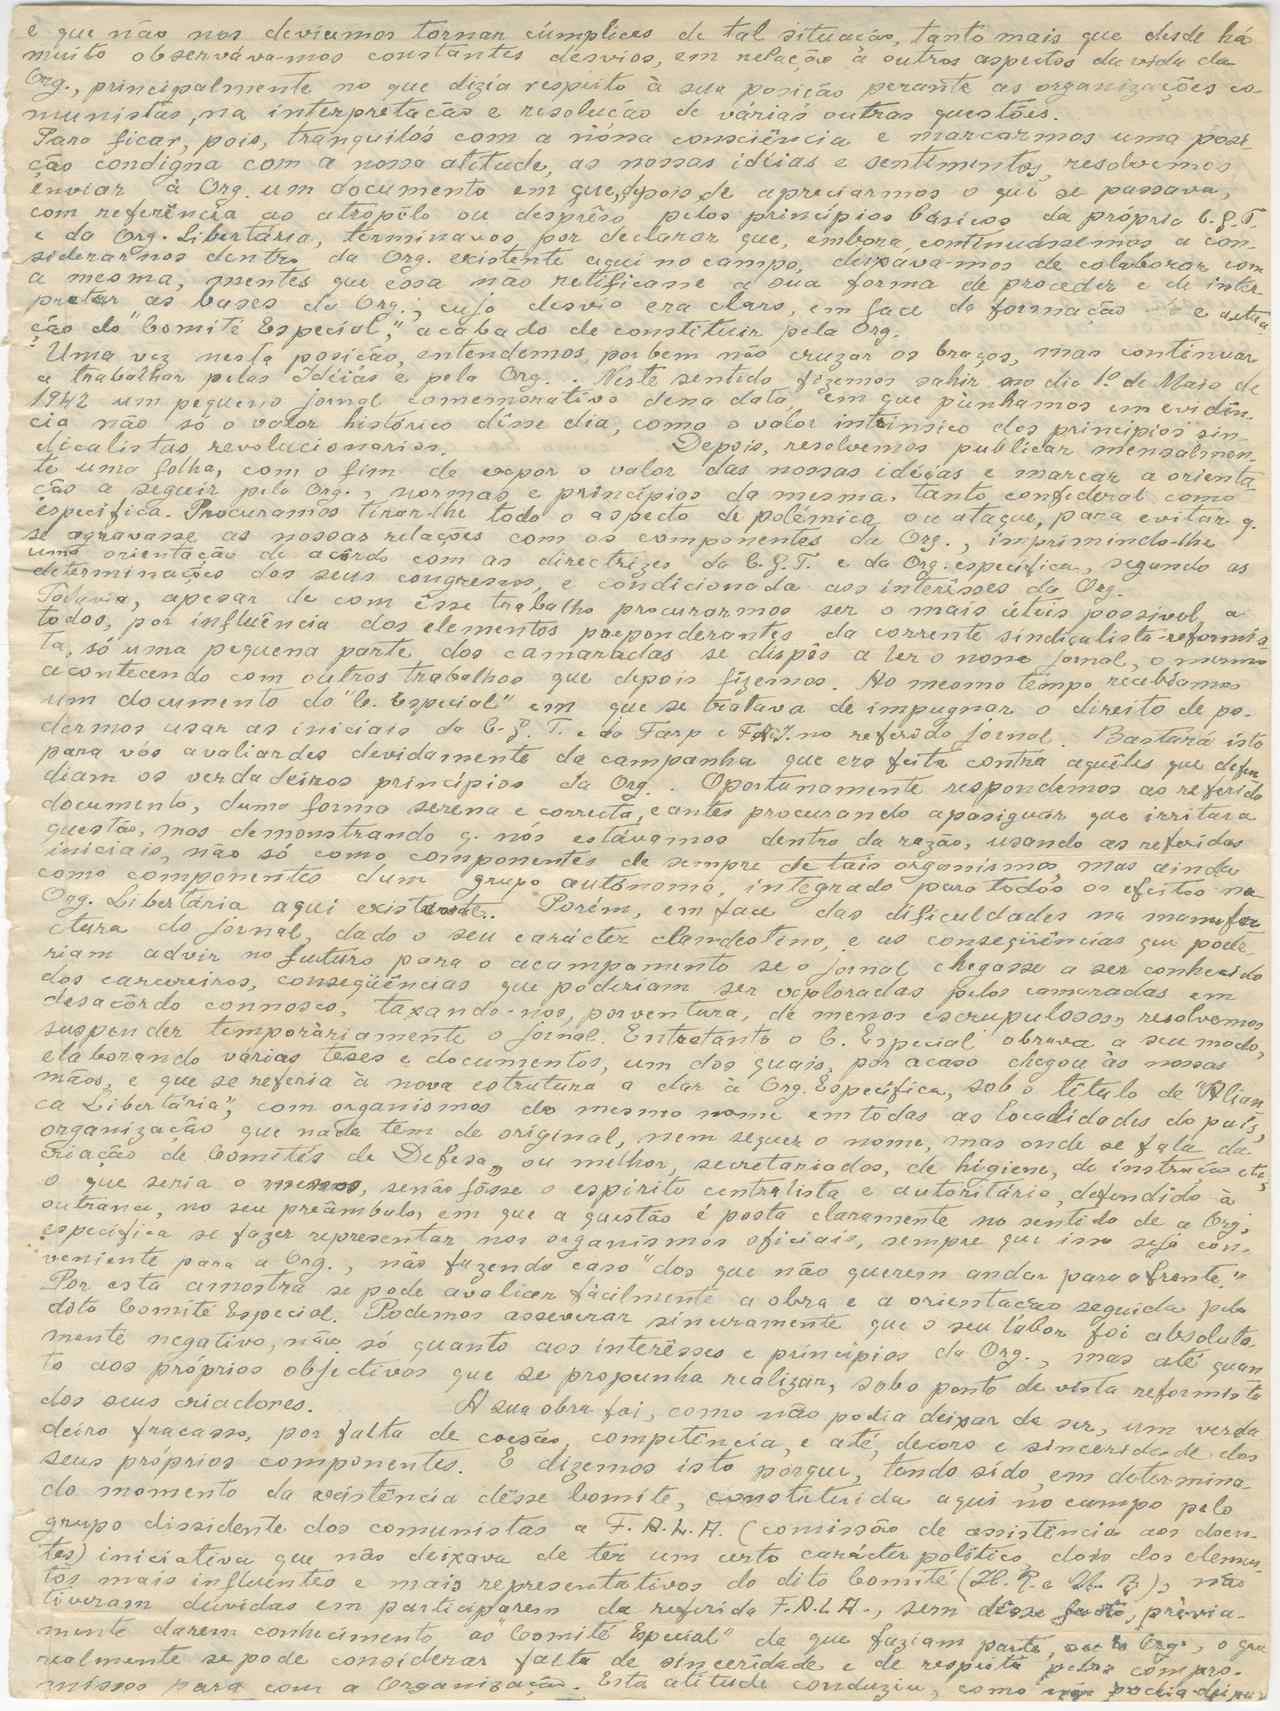 e que não nos devíamos tornar cúmplices de tal situação, tanto mais que desde há
muito observáva-mos constantes desvios, em relação à outros aspectos da vida da
Org., principalmente no que dizia respeito à sua posição perante as organizações co-
munistas, na interpretação e resolução de várias outras questões.
Para ficar, pois, tranquilos com a nossa consciência e marcarmos uma posi-
ção condigna com a nossa atitude, as nossas idéias e sentimentos, resolvemos
enviar à Org. um documento em que, depois de apreciarmos o que se passava,
com referência ao atropêlo ou desprêso pelos princípios básicos da própria C.G.T.
e da Org. Libertária, terminavos por declarar que, embora continuássemos a con-
siderarnos dentro da Org. existente aqui no campo, deixava-mos de colaborar com
a mesma, mentes que essa não retificasse a sua forma de proceder e de inter-
pretar as bases da Org.; cujo desvio era claro, em face da formação e actua-
ção do "Comité Especial", acabado de constituir pela Org.
Uma vez nesta posição, entendemos por bem não cruzar os braços, mas continuar
a trabalhar pelas Idéias e pela Org.. Neste sentido fizemos sahir no dia 1º de Maio de
1942 um pequeno jornal comemorativo dessa data, em que púnhamos em evidên-
cia não só o valor histórico dêsse dia, como o valor intrínsico dos princípios sin-
dicalistas revolucionarios. Depois, resolvemos publicar mensalmen-
te uma folha, com o fim de expor o valor das nossas idéias e marcar a orienta-
ção a seguir pela Org., normas e princípios da mesma, tanto confederal como
específica. Procuramos tirar-lhe todo o aspecto de polémica ou ataque, para evitar q.
se agravasse as nossas relações com os componentes da Org., imprimindo-lhe
uma orientação de acôrdo com as directrizes da C.G.T. e da Org. especifica, segundo as
determinações dos seus congressos, e condicionada aos interêsses da Org.
Todavia, apesar de com êsse trabalho procurarmos ser o mais úteis possivel, a
todos, por influência dos elementos preponderantes da corrente sindicalista-reformis-
ta, só uma pequena parte dos camaradas se dispôs a ler o nosso jornal, o mesmo
acontecendo com outros trabalhos que depois fizemos. Ao mesmo tempo recebíamos
um documento do "C. Especial" em que se tratava de impugnar o direito de po-
dermos usar as iniciais da C.G.T. e da Farp e F.A.I. no referido jornal. Bastará isto
para vós avaliardes devidamente da campanha que era feita contra aqueles que defen-
diam os verdadeiros princípios da Org.. Oportunamente respondemos ao referido
documento, duma forma serena e correcta, e antes procurando apasiguar que irritar a
questão, mas demonstrando q. nós estávamos dentro da razão, usando as referidas
iniciais, não só como componentes de sempre de tais organismos, mas ainda
como componentes dum grupo autónomo, integrado para todos os efeitos na
Org. Libertária aqui existente. Porém, em face das dificuldades na manufac-
ctura do jornal, dado o seu carácter clandestino, e as conseqüências que pode-
riam advir no futuro para o acampamento se o jornal chegasse a ser conhecido
dos carcereiros, conseqüências que poderiam ser exploradas pelos camaradas em
desacôrdo connosco, taxando-nos, porventura, de menos escrupulosos, resolvemos
suspender temporàriamente o jornal. Entretanto o C. Especial obrava a seu modo,
elaborando várias teses e documentos, um dos quais, por acaso chegou às nossas
mãos, e que se referia à nova estrutura a dar à Org. Específica, sob o título de "Alian-
ca Libertária", com organismos do mesmo nome em todas as localidades do país,
organização que nada têm de original, nem sequer o nome, mas onde se fala da
criação de Comités de Defesa, ou melhor, secretariados, de higiene, de instrução etc,
o que seria o menos, senão fôsse o espírito centralista e autoritário, defendido à
outrance, no seu preâmbulo, em que a questão é posta claramente no sentido de a Org.
especifica se fazer representar nos organismos oficiais, sempre que isso seja con-
veniente para a Org., não fazendo caso "dos que não querem andar para a frente."
Por esta amostra se pode avaliar fàcilmente a obra e a orientação seguida pelo
dito Comité Especial. Podemos asseverar sinceramente que o seu labor foi absoluta-
mente negativo, não só quanto aos interêsses e princípios da Org., mas até quan-
to aos próprios objectivos que se propunha realizar, sob o ponto de vista reformista
dos seus criadores. A sua obra foi, como não podia deixar de ser, um verda-
deiro fracasso, por falta de coesão, competência, e até, decoro e sinceridade dos
seus próprios componentes. E dizemos isto porque, tendo sido, em determina-
do momento da existência dêsse Comité, constituida aqui no campo pelo
grupo dissidente dos comunistas a F.A.L.A. (comissão de assistência aos doen-
tes) iniciativa que não deixava de ter um certo carácter politico, dois dos elemen-
tos mais influentes e mais representativos do dito Comité (H.R. e ), não
tiveram duvidas em participarem da referida F.A.L.A., sem dêsse facto, prèvia-
mente darem conhecimento ao Comité Especial" de que faziam parte, ou à Org., o que
realmente se pode considerar falta de sinceridade e de respeito pelos compro-
missos para com a Organização. Esta atitude conduziu, como não podia deixar